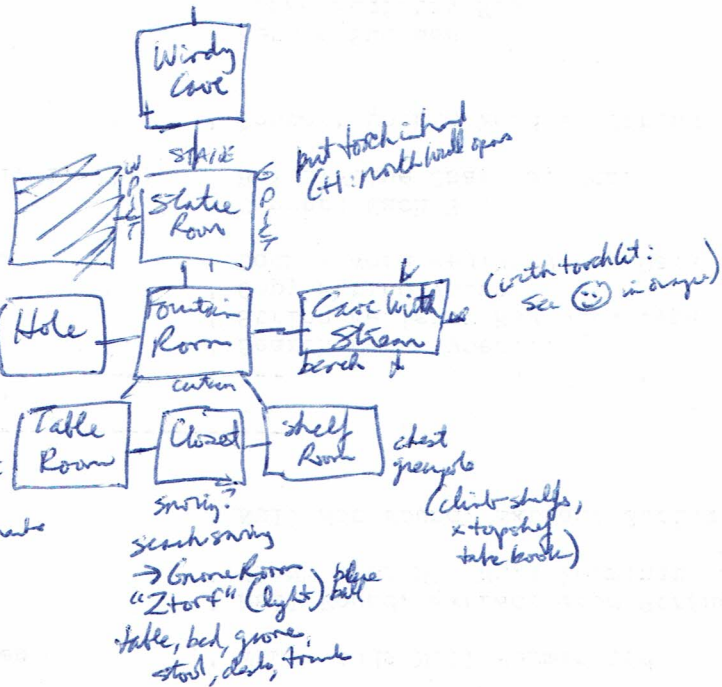 Windy
Cave
STAIRS
put torch in hand
(H: north wall opens
Statue
Room
Hole
Fountain
Room
Cave With
Stream
(with torch lit:
see in orange)
bench
curtain
Table
Room
Closet
Shelf
Room
chest
green pole
(climb shelfs,
x top shelf
take book)
snoring?
search snoring
→ Gnome Room
"Ztorf" (light) blue
ball
table, bed, gnome,
stool, desk, trunk